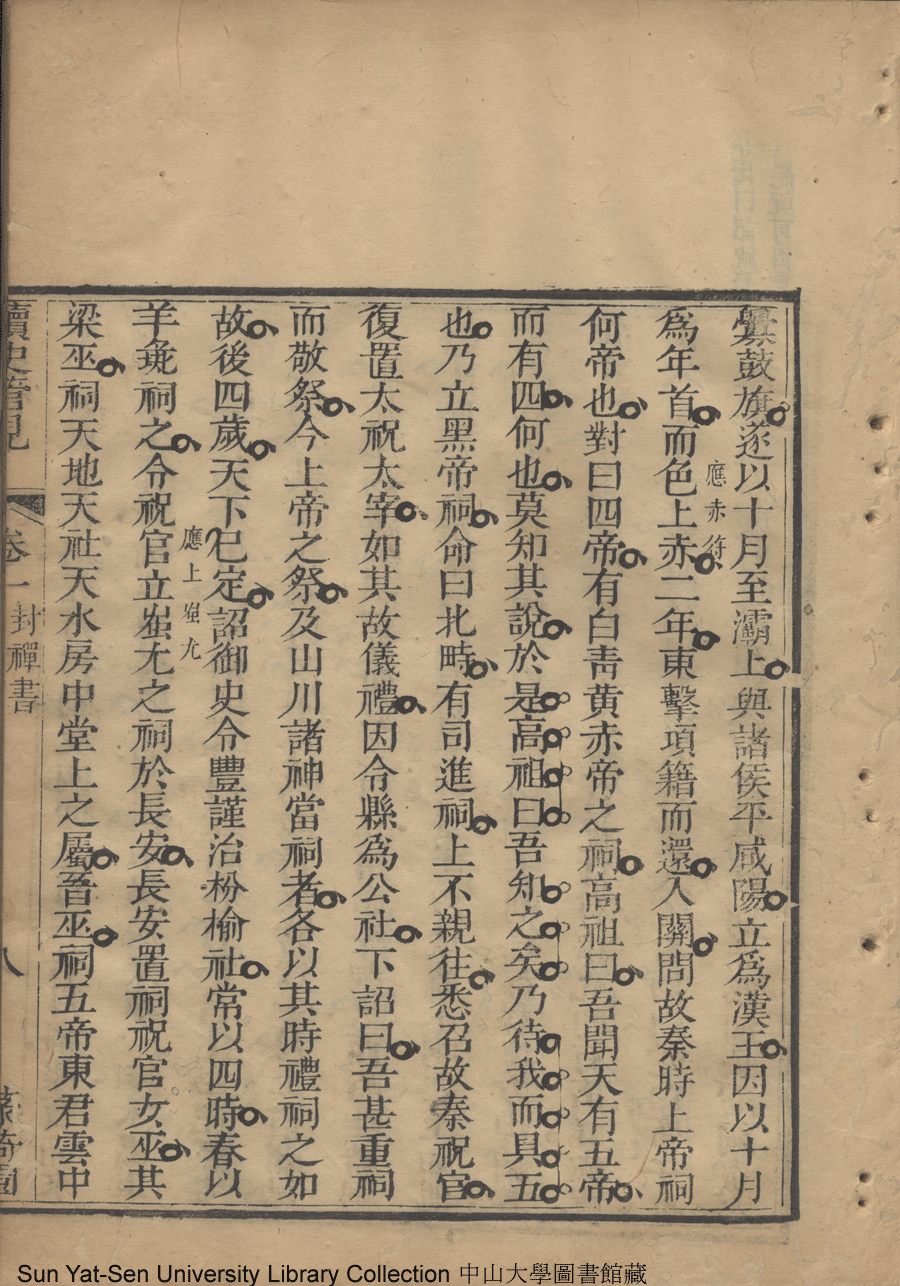 釁鼓旗遂以十月至灞上與諸侯平咸陽立爲漢王因以十月
爲年首而色上赤二年東擊項籍而還入關問故秦時上帝祠
應赤符
何帝也對曰四帝有白靑黃赤帝之祠高祖曰吾聞天有五帝
而有四何也莫知其說於是高祖曰吾知之矣乃待我而具五
也乃立黑帝祠命曰北畤有司進祠上不親往悉召故秦祝官
復置太祝太宰如其故儀禮因令縣爲公社下詔曰吾甚重祠
而敬祭今上帝之祭及山川諸神當祠者各以其時禮祠之如
故後四歲天下已定詔御史令豐謹治枌榆社常以四時春以
應上蚩尤
羊彘祠之令祝官立蚩尤之祠於長安長安置祠祝官女巫其
梁巫祠天地天社天水房中堂上之屬晉巫祠五帝東君雲中
讀史管見
卷一
封禪書
八
Sun Yat-Sen University Library Collection 中山大學圖書館藏